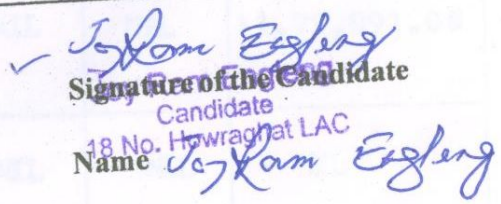 ✓ Joy Ram Engleng
Signature of the Candidate
Joy Ram Engleng
Candidate
18 No. Howraghat LAC
Name Joy Ram Engleng